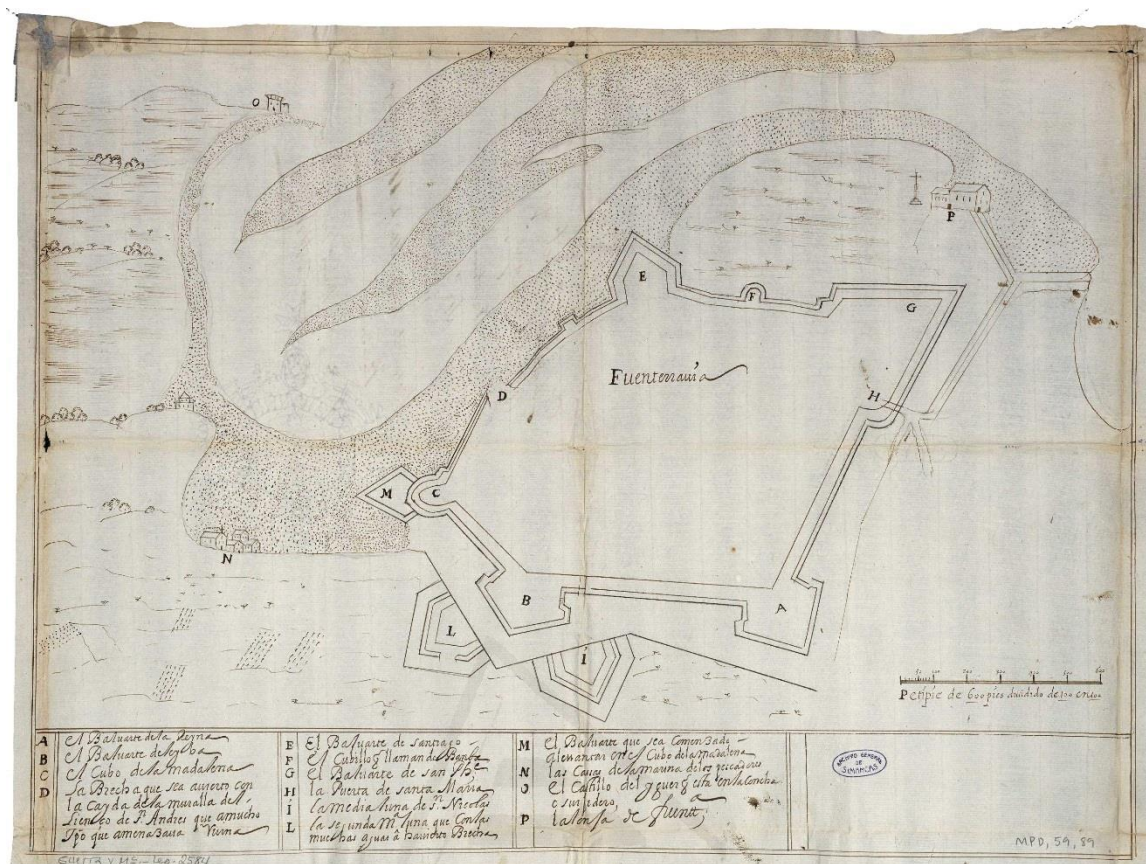 O
P
E
F
G
Fuenterravia
D
H
M
C
N
B
A
L
I
100 200 300 400 500 600
Petipie de 600 pies diuidido de 100 en 100
A El Baluarte de la Reyna
B El Baluarte de leyba
C El Cubo de la madalena
D la Brecha que sea auierto con
la Cayda de la muralla del
Lienço de Sn. Andres que amucho
tpo que amenasaua Ruina
E El Baluarte de santiago
F El Cubillo q llaman de
G El Baluarte de san Phe
H la Puerta de santa Maria
Í la media luna de Sn. Nicolas
L la segunda Ma. luna que Con las
muchas aguas â hauierto Brecha
M El Baluarte que sea Comensado
a leuantar en el Cubo de la madalena
N las Casas de la marina de los pescadores
O El Castillo del yguer q esta en la Concha
o surjidero
P la lonja de
ARCHIVO GENERAL
DE
SIMANCAS
MPD, 59, 89
GUERRA Y Ma. - Leg. 2584